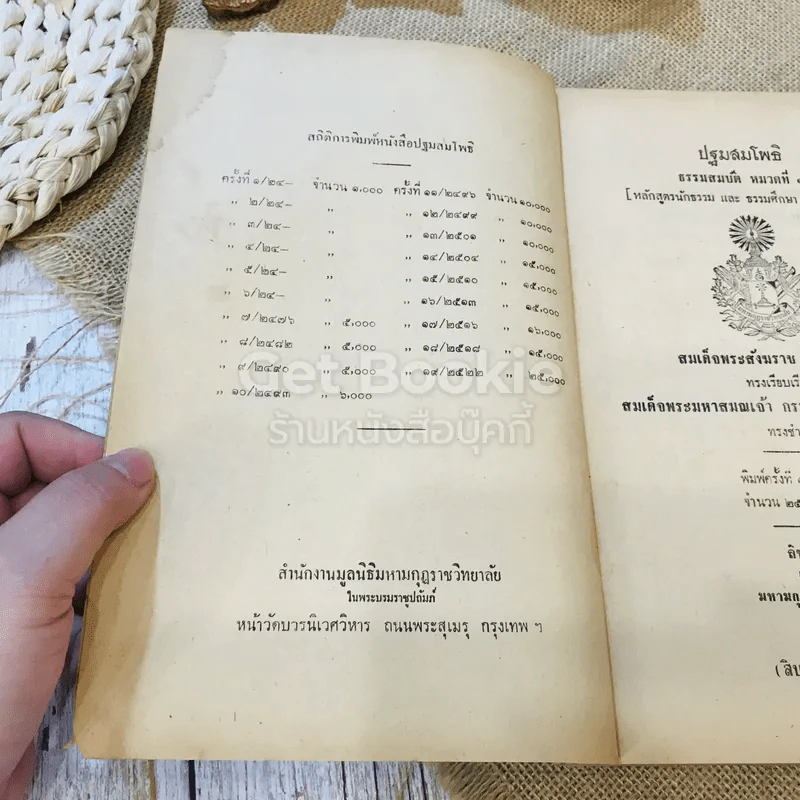 สถิติการพิมพ์หนังสือปฐมสมโพธิ
ครั้งที่ ๑/๒๔— จำนวน ๑,๐๐๐ ครั้งที่ ๑๑/๒๔๙๖ จำนวน ๑๐,๐๐๐
” ๒/๒๔— ” ” ๑๒/๒๔๙๙ ” ๑๐,๐๐๐
” ๓/๒๔— ” ” ๑๓/๒๕๐๑ ” ๑๐,๐๐๐
” ๔/๒๔— ” ” ๑๔/๒๕๐๔ ” ๑๕,๐๐๐
” ๕/๒๔— ” ” ๑๕/๒๕๑๐ ” ๑๕,๐๐๐
” ๖/๒๔— ” ” ๑๖/๒๕๑๓ ” ๑๕,๐๐๐
” ๗/๒๔๗๖ ” ๕,๐๐๐ ” ๑๗/๒๕๑๖ ” ๑๖,๐๐๐
” ๘/๒๔๘๒ ” ๕,๐๐๐ ” ๑๘/๒๕๑๘ ” ๑๕,๐๐๐
” ๙/๒๔๙๐ ” ๕,๐๐๐ ” ๑๙/๒๕๒๒ ” ๒๕,๐๐๐
” ๑๐/๒๔๙๓ ” ๖,๐๐๐
Get Bookie
ร้านหนังสือบุ๊คกี้
สำนักงานมูลนิธิมหามกุฏราชวิทยาลัย
ในพระบรมราชูปถัมภ์
หน้าวัดบวรนิเวศวิหาร ถนนพระสุเมรุ กรุงเทพ ฯ
ปฐมสมโพธิ
ธรรมสมบัติ หมวดที่
[หลักสูตรนักธรรม และ ธรรมศึกษา
สมเด็จพระสังฆราช
ทรงเรียบเรี
สมเด็จพระมหาสมณเจ้า กร
ทรงชำ
พิมพ์ครั้งที่
จำนวน ๒๕
ลิข
มหามกุ
(สิบ